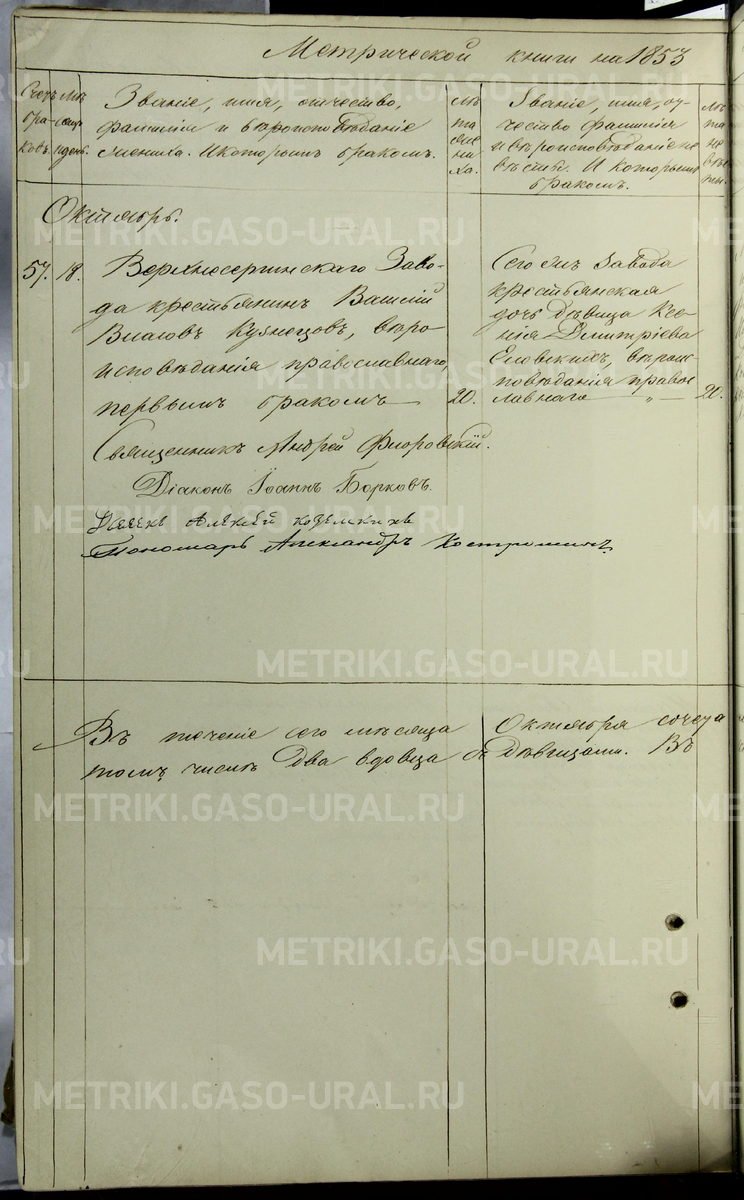 Метрической книги на 1853
Счетъ
бра-
ковъ.
Мѣ
сяцъ
и день.
Званіе, имя, отчество,
фамилія и вѣроисповѣданіе
жениха. И которымъ бракомъ.
лѣ
та
же
ни
ха.
Званіе, имя, от-
чество фамилія
и вѣроисповѣданіе не
вѣсты. И которымъ
бракомъ.
лѣ
та
не
вѣс
ты.
Октябрь.
57. 18.
Верхнесергинскаго Заво-
да крестьянинъ Василій
Власовъ Кузнецовъ, вѣро
исповѣданія православнаго,
первымъ бракомъ —
20.
Сего жъ Завода
крестьянская
дочь дѣвица Ксе-
нія Димитріева
вѣроис-
повѣданія правос
лавнаго — „ —
20.
Священникъ Андрей Флоровскій.
Діаконъ Іоаннъ Борковъ.
Алексій
Пономарь Александръ
Въ теченіе сего мѣсяца Октября сочета
томъ числѣ два вдовца съ дѣвицами. Въ
METRIKI.GASO-URAL.RU